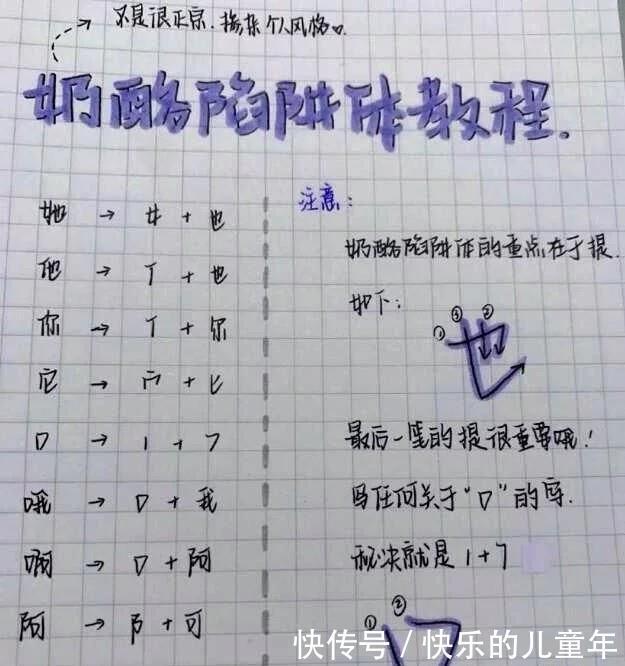 不是很正宗.掺杂个人风格。
奶酪陷阱体教程.
她 → 女 + 也
他 → 亻 + 也
你 → 亻 + 尔
它 → 宀 + 匕
口 → 1 + 7
哦 → 口 + 我
啊 → 口 + 阿
阿 → 阝 + 可
注意:
奶酪陷阱体的重点在于提.
如下:
① ③ ②
也
最后一笔的提很重要哦!
写任何关于“口”的字.
秘诀就是 1+7
① ②
口
快传号/快乐的儿童年